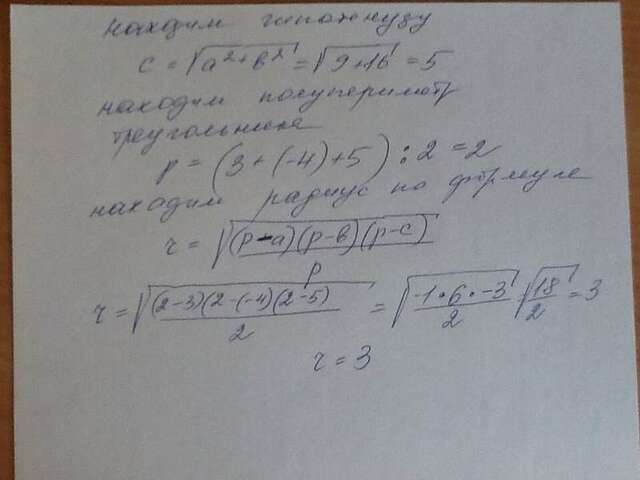 находим гипотенузу
c = √a²+b² = √9+16 = 5
находим полупериметр
треугольника
p = (3+(-4)+5) : 2 = 2
находим радиус по формуле
r = √(p-a)(p-b)(p-c)/p
r = √(2-3)(2-(-4)(2-5)/2 = √-1·6·-3/2 √18/2 = 3
r = 3